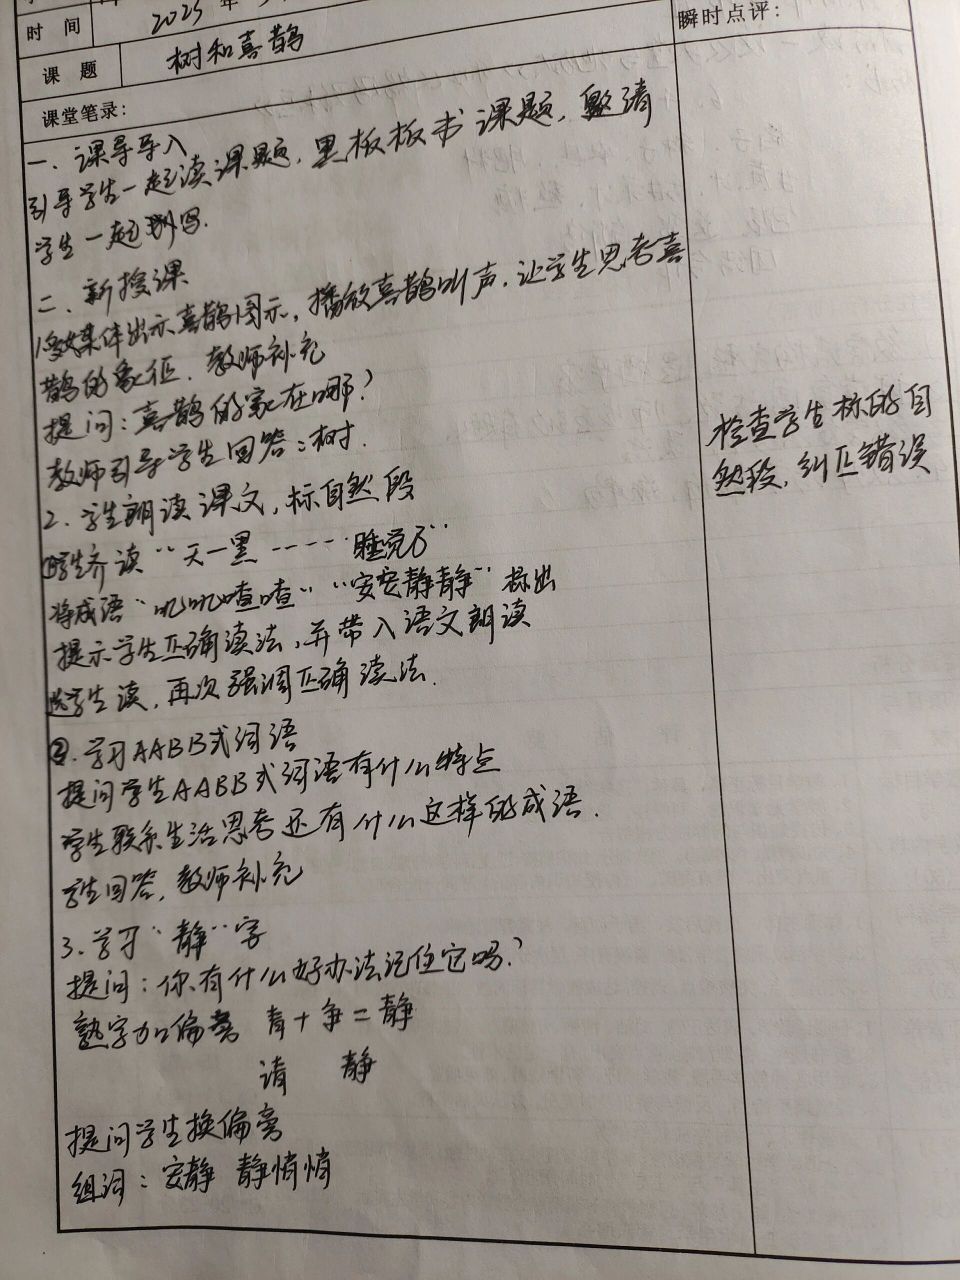 时 间 2025 年
课 题 树和喜鹊
瞬时点评：
课堂笔录：
一、课导导入
引导学生一起读课题，黑板板书课题，邀请
学生一起书写.
二、新授课
1.多媒体出示喜鹊图示，播放喜鹊叫声，让学生思考喜
鹊的象征. 教师补充
提问：喜鹊的家在哪？
教师引导学生回答：树.
2. 学生朗读课文，标自然段
①学生齐读“天一黑……睡觉了”
将成语“叽叽喳喳”“安安静静”标出
提示学生正确读法，并带入语文朗读
学生读，再次强调正确读法.
②.学习AABB式词语
提问学生AABB式词语有什么特点
学生联系生活思考还有什么这样的成语.
学生回答，教师补充
3.学习“静”字
提问：你有什么好办法记住它吗？
熟字加偏旁 青+争=静
请 静
提问学生换偏旁
组词：安静 静悄悄
检查学生标的自
然段，纠正错误